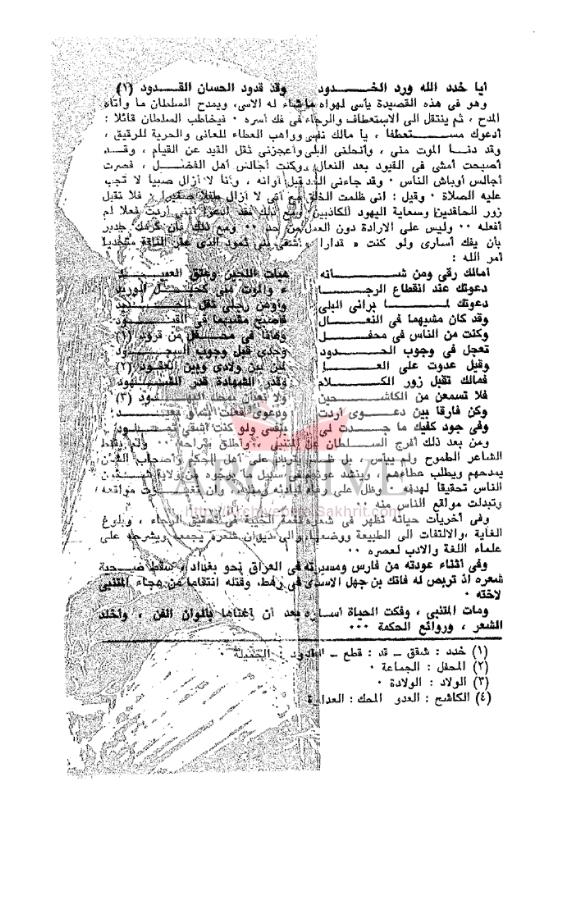 أيا خدد الله ورد الخـــدود وقد قدود الحسان القـــدود (١)
وهو في هذه القصيدة يأسى لهواه ما شاء له الأسى، ويمدح السلطان ما وأتاه
المدح، ثم ينتقل الى الاستعطاف والرجاء في فك أسره ٠ فيخاطب السلطان قائلا :
أدعوك مستعطفا، يا مالك نفسي وواهب العطاء للعانى والحرية للرقيق،
وقد دنا الموت منى، وأنحلنى البلى وأعجزنى ثقل القيد عن القيام، وقد
أصبحت أمشى في القيود بعد النعال، وكنت أجالس أهل الفضل، فصرت
أجالس أوباش الناس ٠ وقد جاءنى الحد قبل أوانه، وأنا لا أزال صبيا لا تجب
عليه الصلاة ٠ وقيل : انى ظلمت الخلق مع أنى لا أزال طفلا صغيرا ٠ فلا تقبل
زور الحاقدين وسعاية اليهود الكاذبين ومع ذلك أردت فعلا لم
أفعله ٠٠ وليس على الارادة دون العمل من حد ٠٠ ومع ذلك فان كرمك جدير
بأن يفك أسارى ولو كنت « قدارا » أشقى بنى ثمود الذى عقر الناقة متحديا
أمر الله :
أمالك رقى ومن شـــانه هبات اللجين وعتق العبيـــد
دعوتك عند انقطاع الرجـــا ء والموت منى كحبل الوريد
دعوتك لمـــا برانى البلى وأوهن رجلى ثقل الحديد
وقد كان مشيهما في النعـــال فأصبح مشيهما في القيـــود
وكنت من الناس في محفـــل وها أنا في محفل من قرود (٢)
تعجل في وجوب الحـــدود وحدى قبل وجوب السجـــود
وقيل عدوت على العـــالمين بين ولادى وبين القعـــود (٣)
فمالك تقبل زور الكـــلام وقدر الشهادة قدر الشهـــود
فلا تسمعن من الكاشـــحين ولا تعبأن بمحك اليهـــود (٣)
وكن فارقا بين دعـــوى أردت ودعوى فعلت بشأو بعيـــد
وفى جود كفيك ما جـــدت لى بنفسى ولو كنت أشقى ثمـــود
ومن بعد ذلك أفرج السلطان عن المتنبى، وأطلق سراحه ٠٠ ولم يقنط
الشاعر الطموح ولم ييأس، بل على أهل الحكم وأصحاب الشأن
يمدحهم ويطلب عطاءهم، وينشد عونهم في سبيل ما يرجوه من ولاية
الناس تحقيقا لهدفه ٠ وظل على وفاء لمبادئه وان تغيرت مواقفه
وتبدلت مواقع الناس منه ٠
وفى أخريات حياته تظهر في شعره نغمة الخيبة في تحقيق الرجاء، وبلوغ
الغاية، والالتفات الى الطبيعة ووصفها والى ديوان شعره يجمعه ويشرحه على
علماء اللغة والادب لعصره ٠٠
وفى أثناء عودته من فارس ومسيرته في العراق نحو بغداد، سقط ضـــحية
شعره اذ تربص له فاتك بن جهل الاسدى في رهط، وقتله انتقاما من هجاء المتنبى
لاخته ٠
ومات المتنبى، وفكت الحياة أساره بعد أن أغناها بألوان الفن، وأخلد
الشعر، وروائع الحكمة ٠٠٠
(١) خدد : شقق – قد : قطع – القدود : الجميلة ٠
(٢) المحفل : الجماعة ٠
(٣) الولاد : الولادة ٠
(٤) الكاشح : العدو المحك : العداوة
ARCHIVE
http://Archivebeta.Sakhrit.com